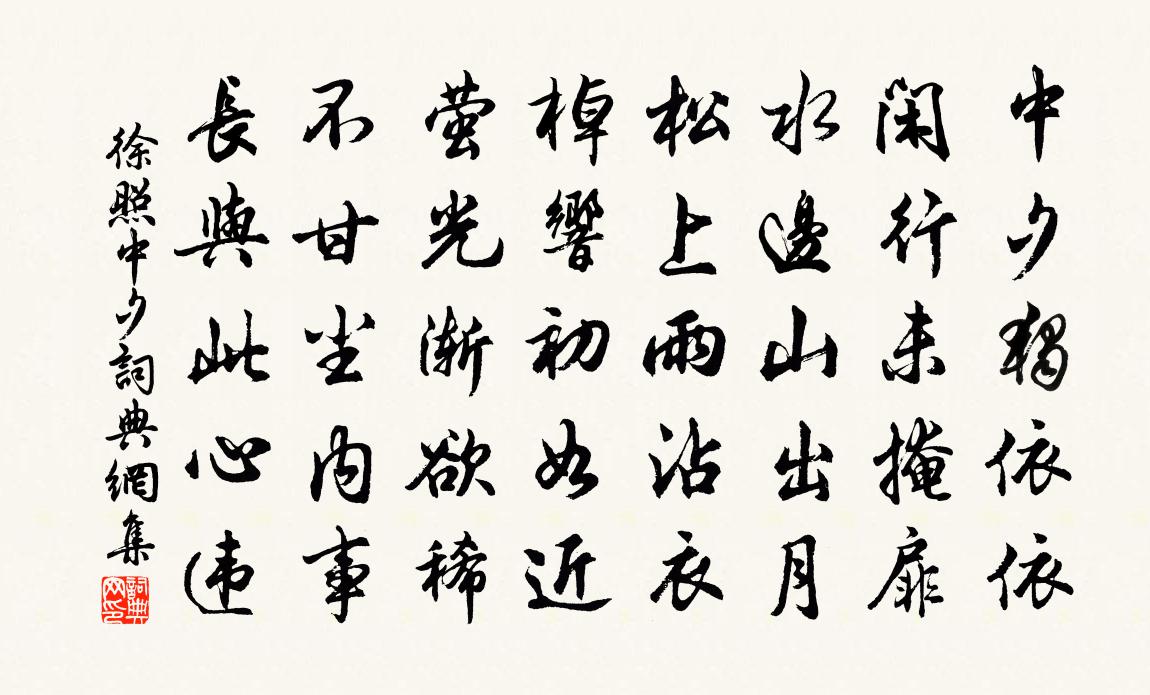 中夕獨依依
閑行未掩扉
水邊山出月
松上雨沾衣
棹響初如近
萤光漸欲稀
不甘尘內事
長與此心违
徐照中夕詞典網集
詞典网印